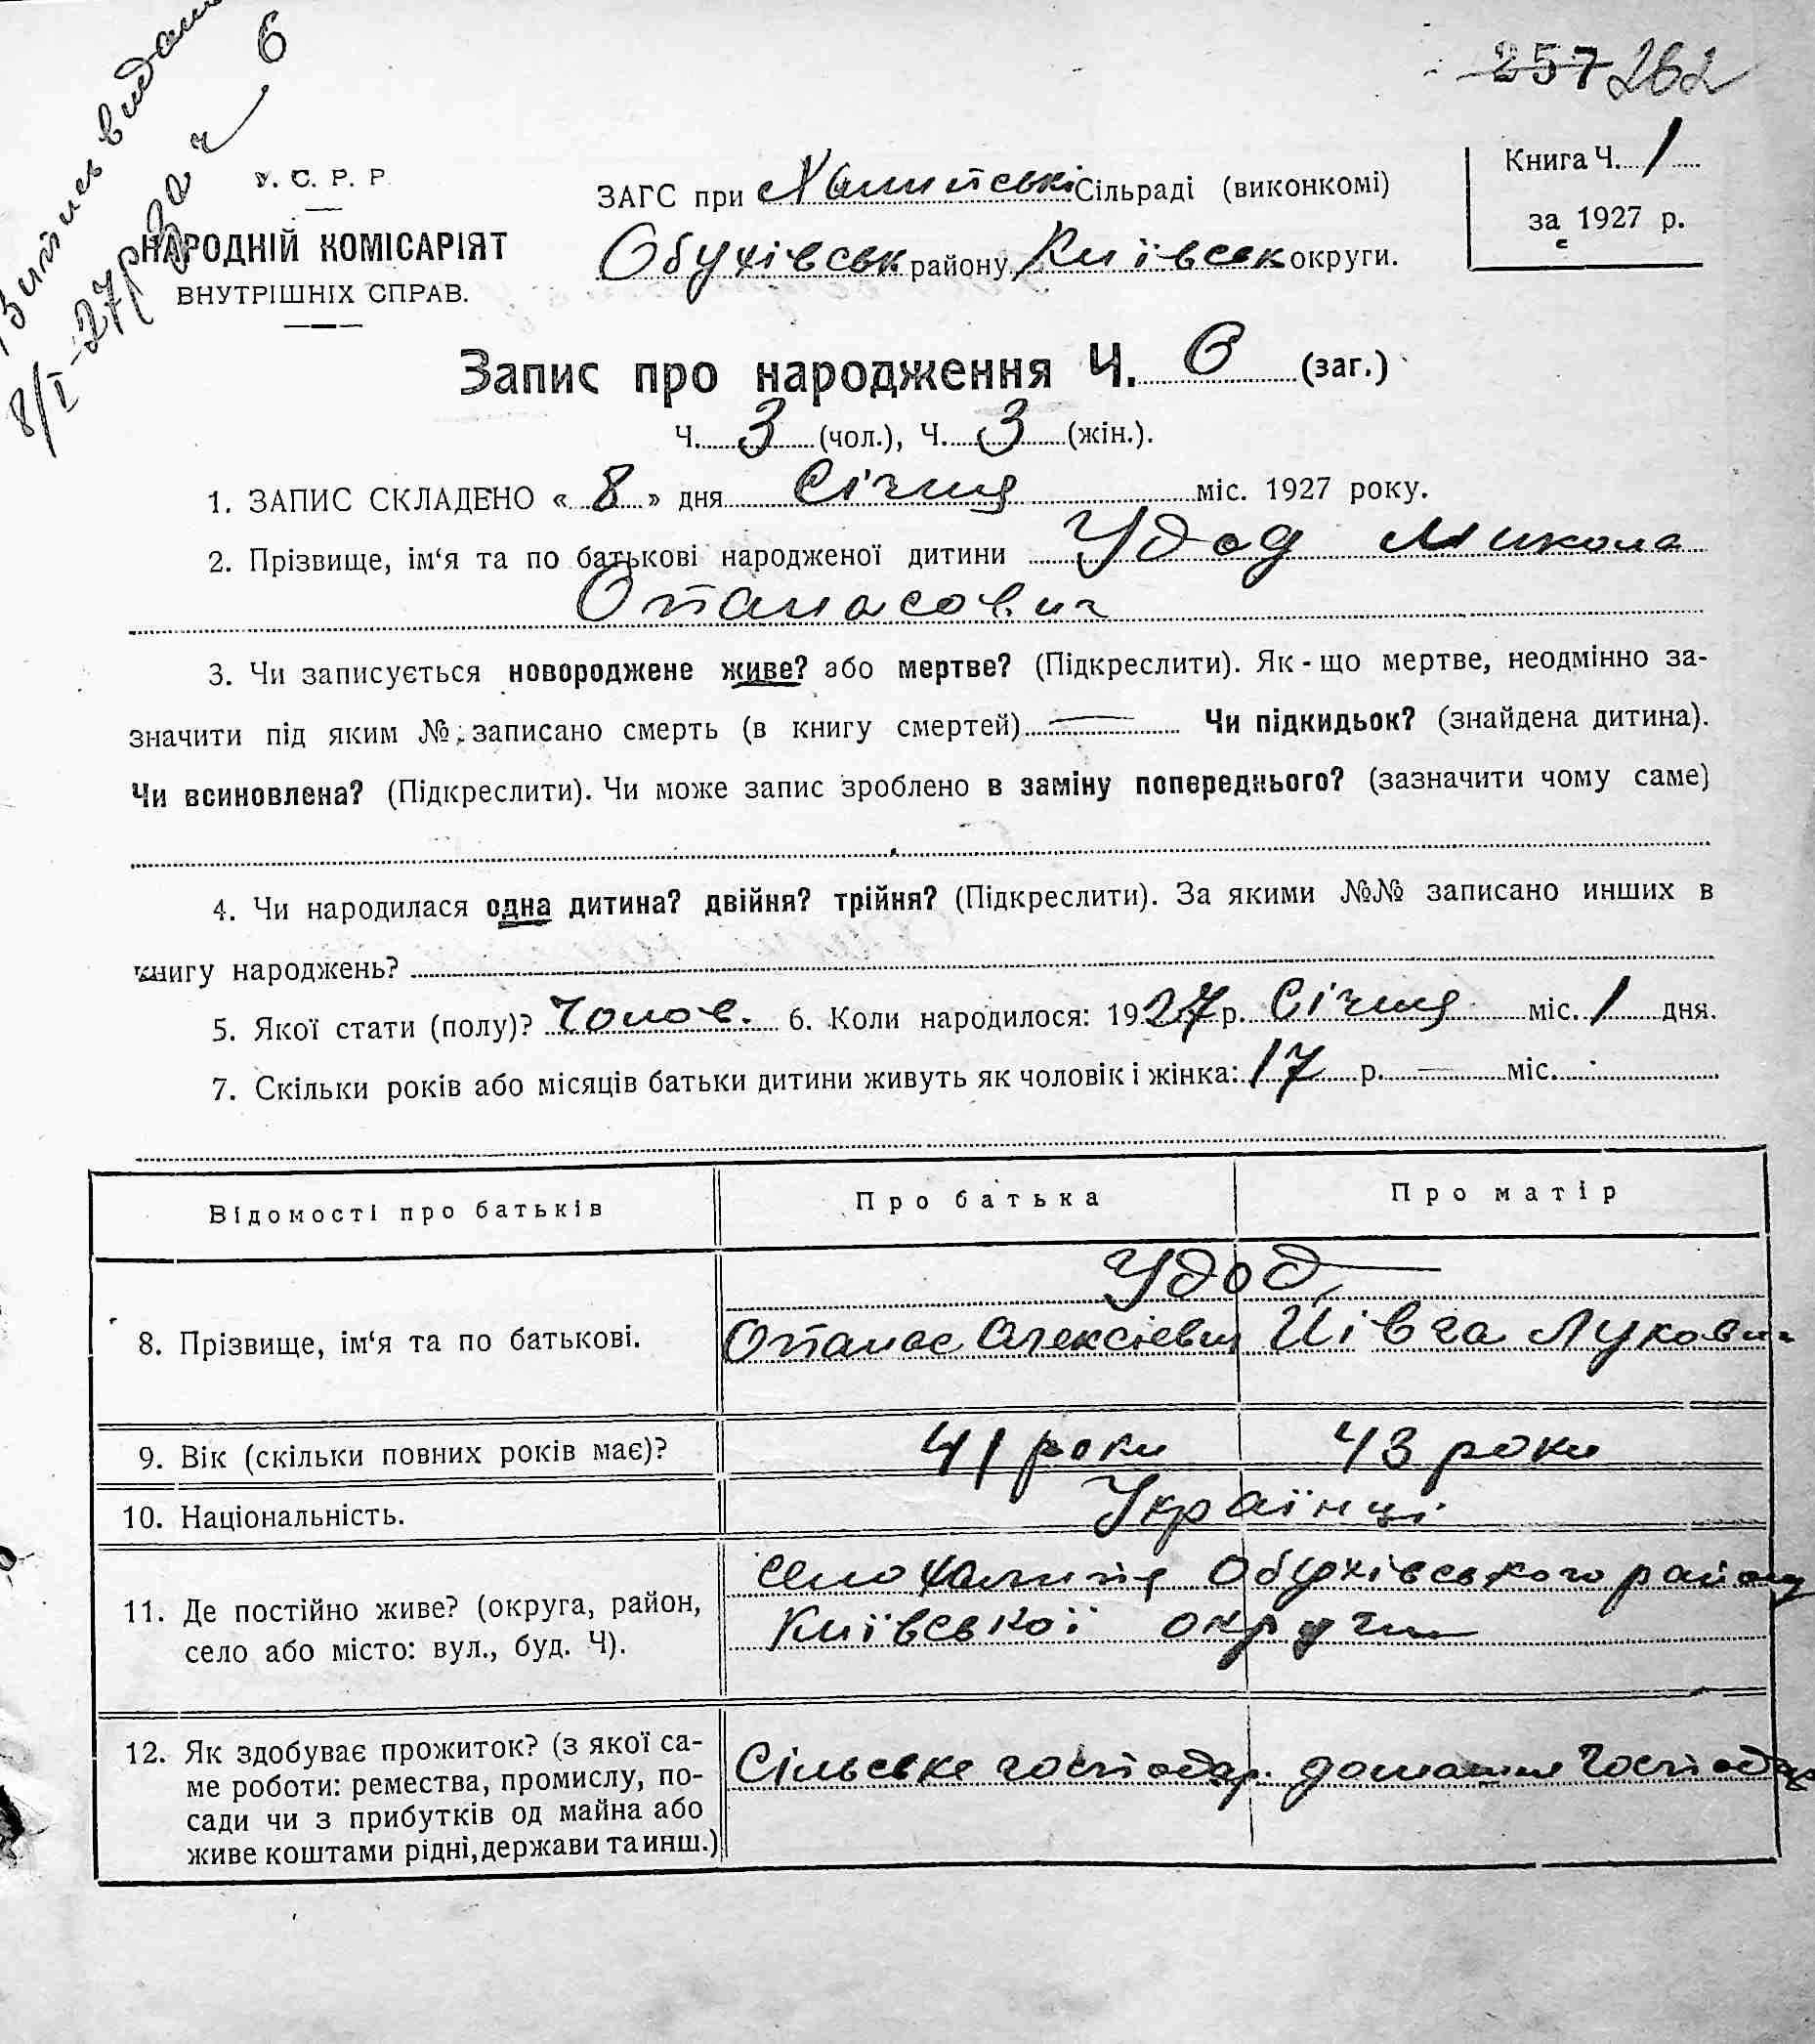 257 262
Витпись видана
8/I-27р за ч 6
У. С. Р. Р.
НАРОДНІЙ КОМІСАРІЯТ
ВНУТРІШНІХ СПРАВ.
ЗАГС при Халипські Сільраді (виконкомі)
Обухівськ. району, Київськ округи.
Книга Ч. 1
за 1927 р.
Запис про народження Ч. 6 (заг.)
Ч. 3 (чол.), Ч. 3 (жін.).
1. ЗАПИС СКЛАДЕНО « 8 » дня Січня міс. 1927 року.
2. Прізвище, ім‘я та по батькові народженої дитини Удод Микола
Опанасович
3. Чи записується новороджене живе? або мертве? (Підкреслити). Як-що мертве, неодмінно за-
значити під яким № записано смерть (в книгу смертей) — Чи підкидьок? (знайдена дитина).
Чи всиновлена? (Підкреслити). Чи може запис зроблено в заміну попереднього? (зазначити чому саме)
4. Чи народилася одна дитина? двійня? трійня? (Підкреслити). За якими №№ записано инших в
книгу народжень?
5. Якої стати (полу)? Чолов. 6. Коли народилося: 1927 р. Січня міс. 1 дня.
7. Скільки років або місяців батьки дитини живуть як чоловік і жінка: 17 р. — міс.
Відомості про батьків Про батька Про матір
Удод
8. Прізвище, ім‘я та по батькові. Опанас Олексієвич Йівга Лукович
9. Вік (скільки повних років має)? 41 роки 43 роки
10. Національність. Українці
11. Де постійно живе? (округа, район, село або місто: вул., буд. Ч). село Халипія Обухівського району
Київської округи
12. Як здобуває прожиток? (з якої са-
ме роботи: ремества, промислу, по-
сади чи з прибутків од майна або
живе коштами рідні, держави та инш.)
Сільське господар. домашнє господар